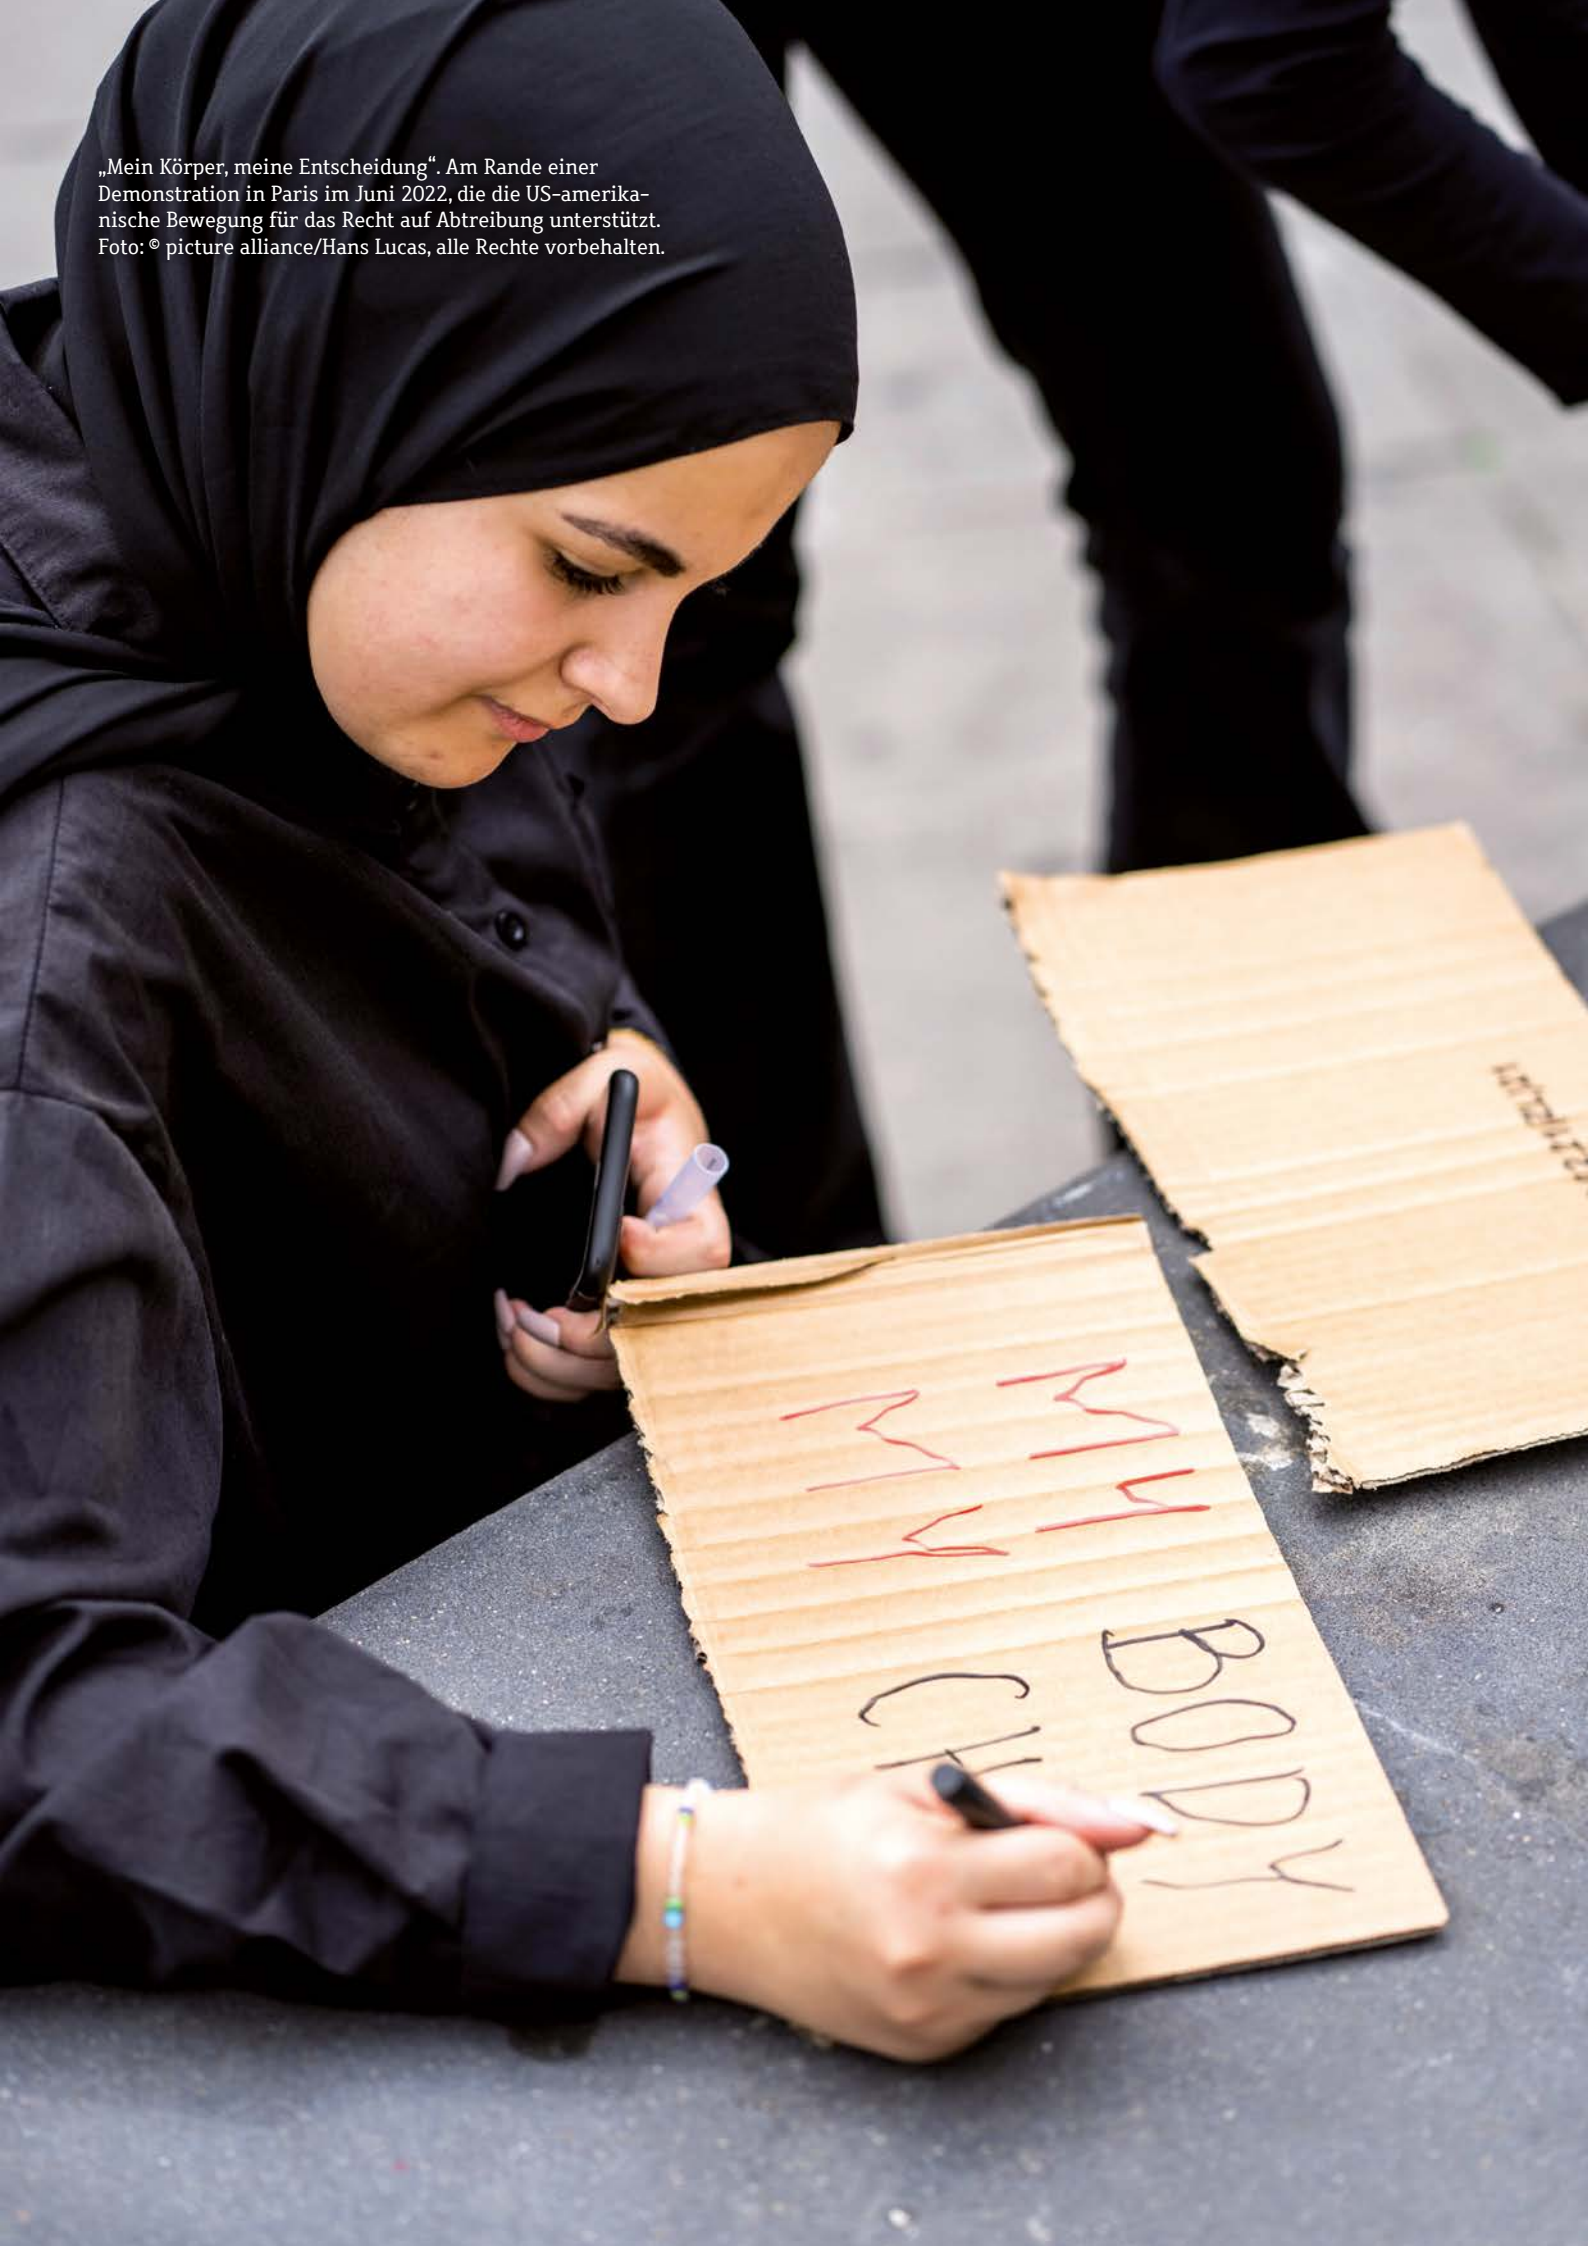 „Mein Körper, meine Entscheidung“. Am Rande einer
Demonstration in Paris im Juni 2022, die die US-amerika-
nische Bewegung für das Recht auf Abtreibung unterstützt.
Foto: © picture alliance/Hans Lucas, alle Rechte vorbehalten.
MY BODY
MY CH